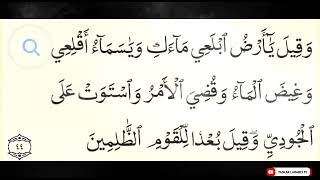 وَقِيلَ يَٰٓأَرْضُ ٱبْلَعِي مَآءَكِ وَيَٰسَمَآءُ أَقْلِعِي
وَغِيضَ ٱلْمَآءُ وَقُضِيَ ٱلْأَمْرُ وَٱسْتَوَتْ عَلَى
ٱلْجُودِيِّ وَقِيلَ بُعْدًا لِّلْقَوْمِ ٱلظَّٰلِمِينَ ٤٤